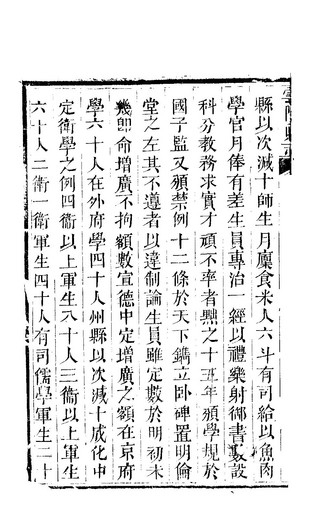 縣以次減十師生月廩食米人六斗有司給以魚肉
學官月俸有差生員專治一經以禮樂射御書數設
科分教務求實才頑不率者黜之十五年頒學規於
國子監又頒禁例十二條於天下鐫立卧碑置明倫
堂之左其不遵者以違制論生員雖定數於明初未
幾即命增廣不拘額數宣德中定增廣之額在京府
學六十人在外府學四十人州縣以次減十成化中
定衛學之例四衛以上軍生八十人三衛以上軍生
六十人二衛一衛軍生四十人有司儒學軍生二十